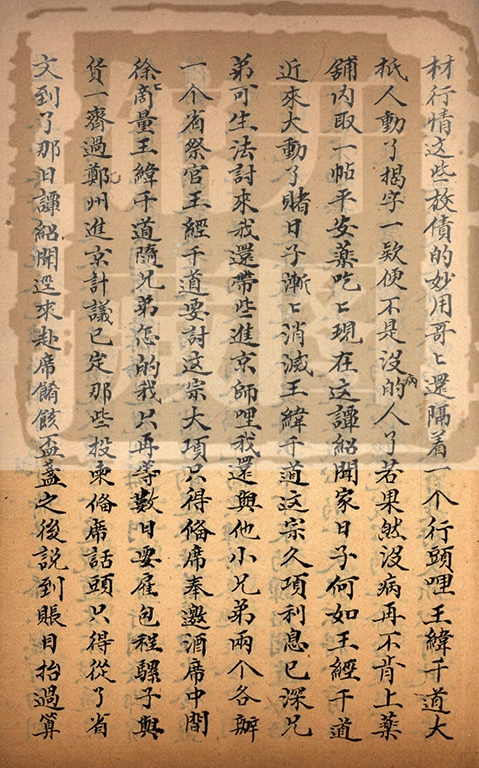 材行情这些放債的妙用哥〻還隔着一个行頭哩王緯千道大
抵人動了揭字一欵便不是沒病的人了若果然沒病再不肯上藥
舖内取一帖平安藥吃〻現在这譚紹聞家日子何如王經千道
近來大動了賭日子漸〻消滅王緯千道这宗久項利息已深兄
弟可生法討來我還帶些進京師哩我還與他小兄弟兩个各辦
一个省祭官王經千道要討这宗大項只得俻席奉邀酒席中間
徐〻商量王緯千道隨兄弟怎的我只再等數日要雇包程騾子與
貨一齊過鄭州進京計議已定那些投柬俻席話頭只得從了省
文到了那日譚紹聞逕來赴席餚餕盃盞之後説到賬目抬過算